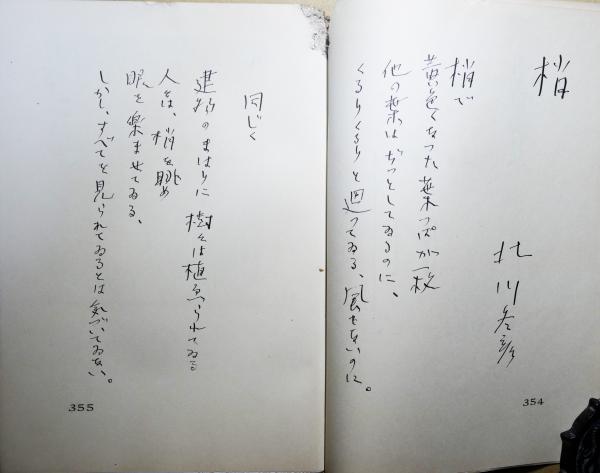 梢
北川冬彦
梢で
黄色くなった葉っぱが一枚
他の葉はぢっとしてゐるのに、
くるりくるりと廻ってゐる、風もないのに。
354
同じく
建物のまはりに樹々は植ゑられてゐる
人々は、梢を眺め
眼を楽ませてゐる、
しかし、すべてを見られてゐるとは気づいてゐない。
355